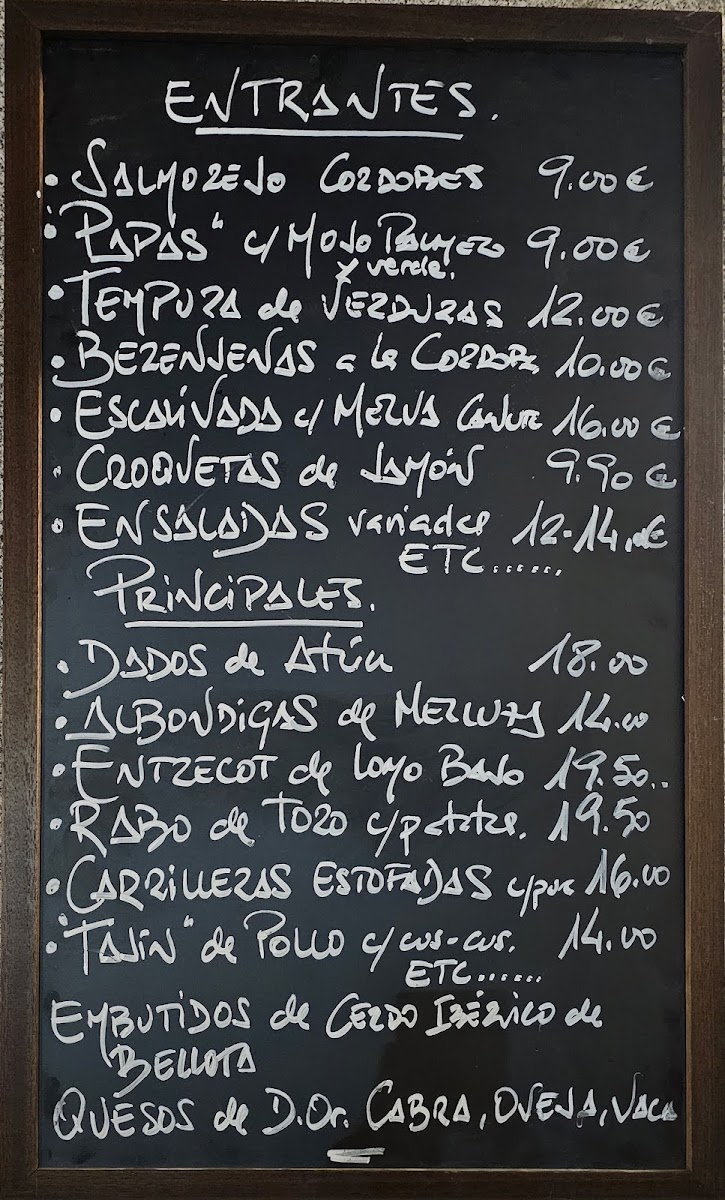 ENTRANTES.
• SALMOREJO CORDOBES 9.00€
• "PAPAS" c/ MOJO PALMERO 9.00€
y verde.
• TEMPURA de VERDURAS 12.00€
• BERENJENAS a la CORDOB. 10.00€
• ESCALIVADA c/ MELVA CANUT 16.00€
• CROQUETAS de JAMÓN 9.90€
• ENSALADAS variadas 12-14.€
ETC......
PRINCIPALES.
• DADOS de Atún 18.00
• ALBONDIGAS de MERLUZA 14.00
• ENTRECOT de lomo BAJO 19.50..
• RABO de TORO c/patatas. 19.50
• CARRILLERAS ESTOFADAS c/pur 16.00
• "TAJIN" de POLLO c/ cus-cus. 14.00
ETC......
EMBUTIDOS de CERDO IBÉRICO de
BELLOTA
QUESOS de D.Or. CABRA, OVEJA, VACA